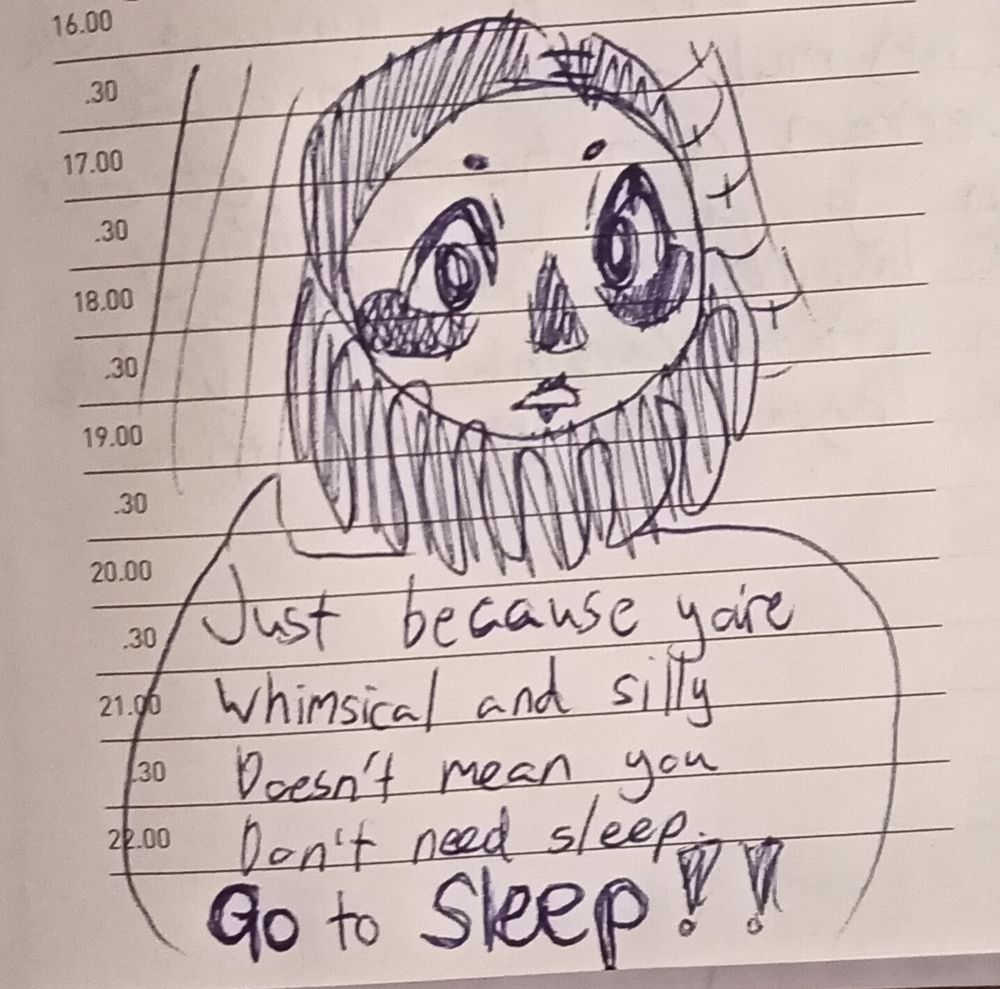 16.00
.30
17.00
.30
18.00
.30
19.00
.30
20.00
.30
21.00
.30
22.00
Just because you're
Whimsical and silly
Doesn't mean you
Don't need sleep.
Go to Sleep!!